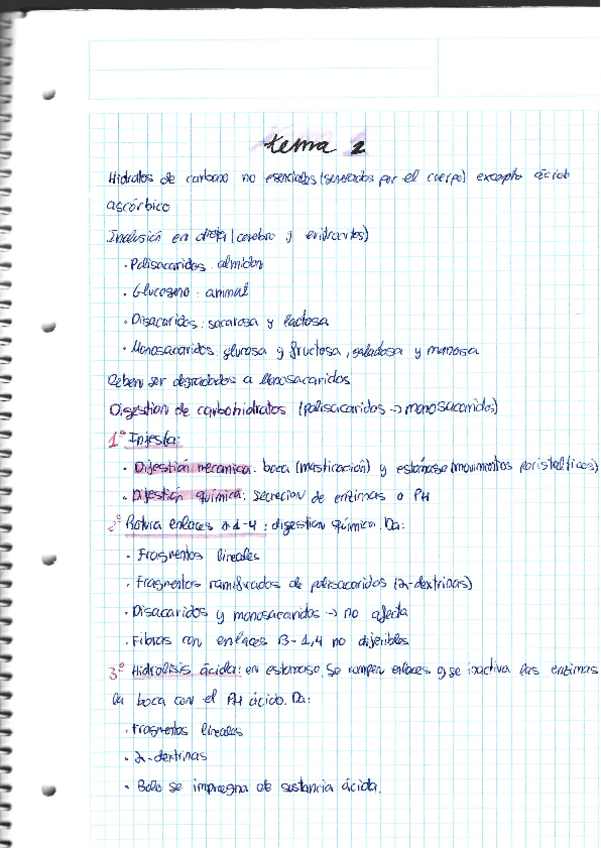 tema 2
Hidratos de carbono no esenciales (generados por el cuerpo) excepto ácido
ascórbico
Inclusión en dieta (cerebro y eritrocitos)
· Polisacaridos: almidon
· Glucogeno: animal
· Disacaridos: sacarosa y lactosa
· Monosacaridos: glucosa y fructosa, galactosa y manosa
Deben ser degradados a Monosacaridos
Digestion de carbohidratos (polisacaridos -> monosacaridos)
1º Injesta:
· Dijestión mecanica: boca (masticación) y estómago (movimientos peristalticos)
· Dijestión química: secrecion de enzimas o PH
2º Rotura enlaces α 1-4: digestion química. Da:
· Fragmentos lineales
· Fragmentos ramificados de polisacaridos (α-dextrinas)
· Disacaridos y monosacaridos -> no afecta
· Fibras con enlaces B-1,4 no dijeribles
3º Hidrolisis ácida: en estomago. Se rompen enlaces y se inactiva las enzimas
la boca con el PH ácido. Da:
· Fragmentos lineales
· α-dextrinas
· Bolo se impregna de sustancia ácida.